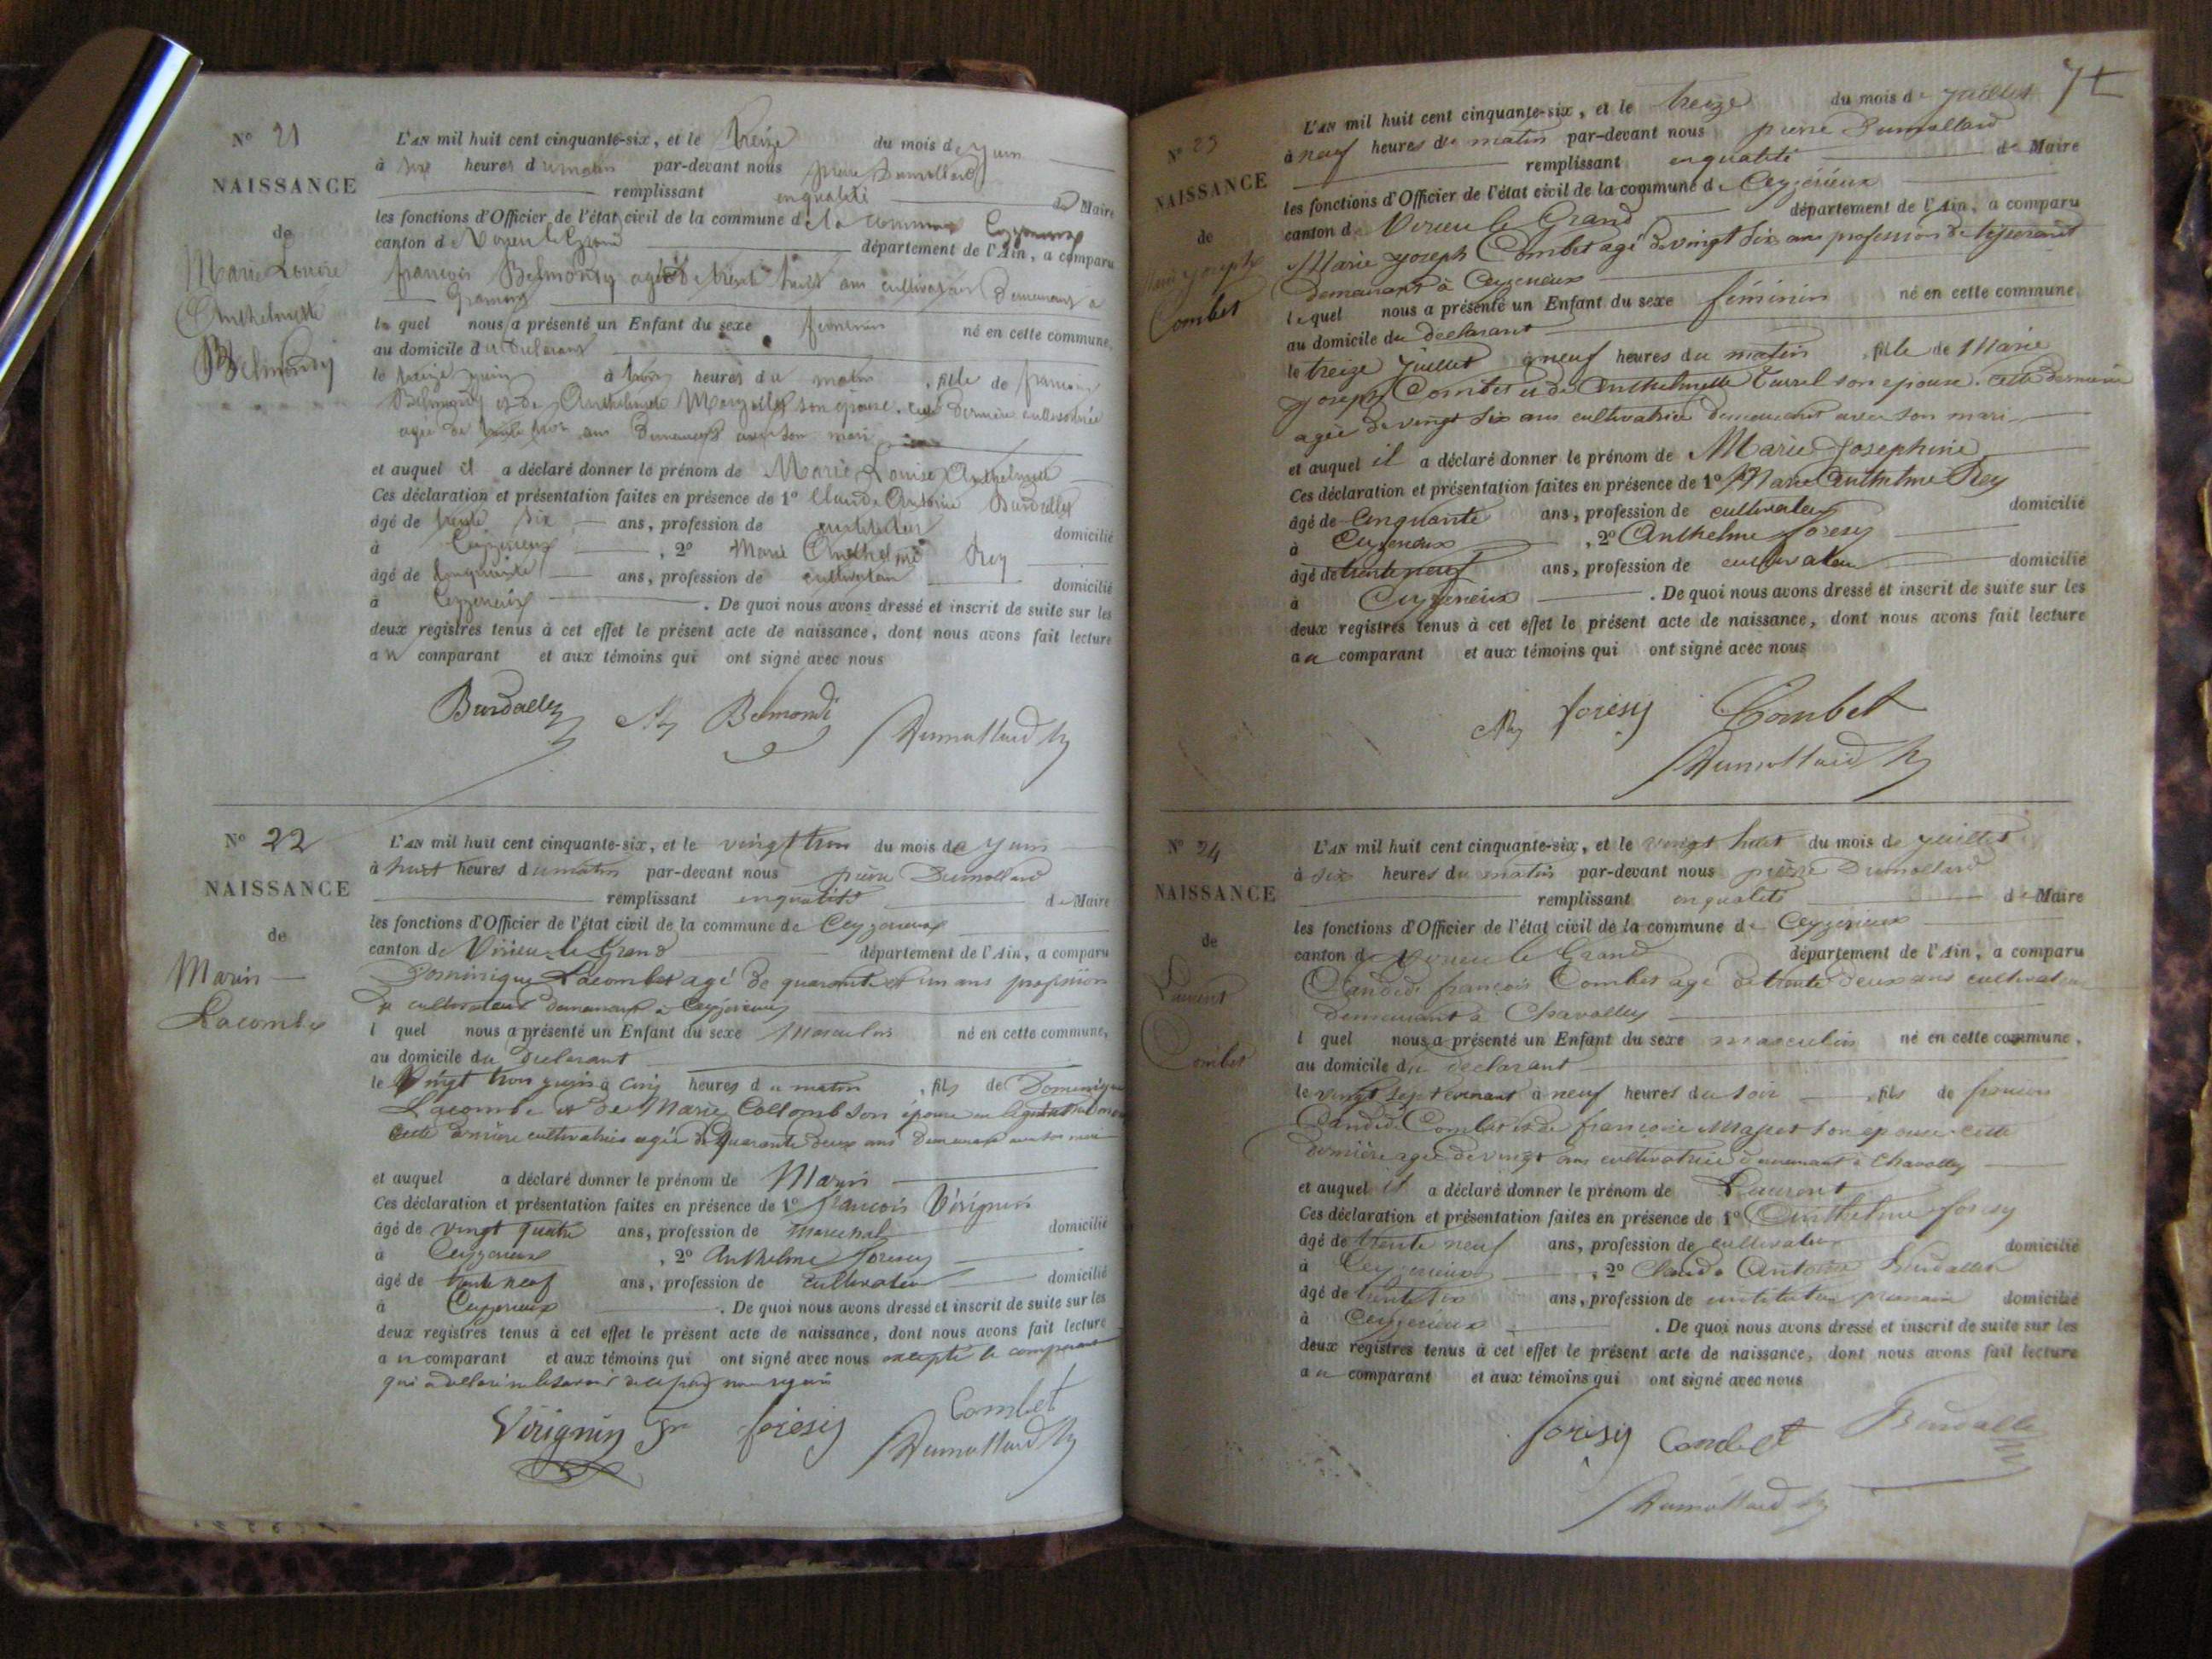 N° 21
NAISSANCE
de
Marie Louise
Anthelmette
Belmondy
L'AN mil huit cent cinquante-six, et le treize du mois de juin
à six heures du matin par-devant nous pierre Dumollard
remplissant en qualité de Maire
les fonctions d'Officier de l'état civil de la commune d la commune Ceyzerieux
canton d Virieu le Grand département de l'Ain, a comparu
françois Belmondy agé de trente huit ans cultivateur demeurant à
le quel nous a présenté un Enfant du sexe feminin né en cette commune,
au domicile du declarant
le treize juin à trois heures du matin, fille de francois
Belmondy et de Anthelmette son epouse. cette derniere cultivatrice
agée de trente trois ans demeurant avec son mari
et auquel il a déclaré donner le prénom de Marie Louise Anthelmette
Ces déclaration et présentation faites en présence de 1° Claude Antoine Burdallet
âgé de trente six ans, profession de instituteur domicilié
à Ceyzerieux, 2° Marie Anthelme Rey
âgé de cinquante ans, profession de cultivateur domicilié
à Ceyzerieux. De quoi nous avons dressé et inscrit de suite sur les
deux registres tenus à cet effet le présent acte de naissance, dont nous avons fait lecture
au comparant et aux témoins qui ont signé avec nous
Burdallet Rey Belmondi
Dumollard
N° 22
NAISSANCE
de
Marin
Lacombe
L'AN mil huit cent cinquante-six, et le vingt trois du mois de juin
à huit heures du matin par-devant nous pierre Dumollard
remplissant en qualité de Maire
les fonctions d'Officier de l'état civil de la commune de Ceyzerieux
canton de Virieu le Grand département de l'Ain, a comparu
Dominique Lacombe agé de quarante et un ans profession
de cultivateur demeurant à Ceyzerieux
l quel nous a présenté un Enfant du sexe Masculin né en cette commune,
au domicile du declarant
le Vingt trois juin à cinq heures du matin, fils de Dominique
Lacombe et de Marie Collomb son épouse
cette dernière cultivatrice agée de quarante deux ans demeurant avec son mari
et auquel a déclaré donner le prénom de Marin
Ces déclaration et présentation faites en présence de 1° francois Vérignin
âgé de vingt quatre ans, profession de marechal domicilié
à Ceyzerieux, 2° Anthelme foresy
âgé de trente neuf ans, profession de cultivateur domicilié
à Ceyzerieux. De quoi nous avons dressé et inscrit de suite sur les
deux registres tenus à cet effet le présent acte de naissance, dont nous avons fait lecture
au comparant et aux témoins qui ont signé avec nous excepté le comparant
qui a déclaré ne le savoir de ce
Virignin forésy Combet
Dumollard
N° 23
NAISSANCE
de
Marie joseph
Combet
L'AN mil huit cent cinquante-six, et le treize du mois de juillet
à neuf heures du matin par-devant nous pierre Dumollard
remplissant en qualité de Maire
les fonctions d'Officier de l'état civil de la commune de Ceyzérieux
canton de Virieu le Grand département de l'Ain, a comparu
Marie joseph Combet agé de vingt six ans profession de tisserant
demeurant à Ceyzerieux
lequel nous a présenté un Enfant du sexe féminin né en cette commune,
au domicile du declarant
le treize juillet à neuf heures du matin, fille de Marie
joseph Combet et de Anthelmette son epouse. cette derniere
agée de vingt six ans cultivatrice demeurant avec son mari
et auquel il a déclaré donner le prénom de Marie Josephine
Ces déclaration et présentation faites en présence de 1° Marie Anthelme Rey
âgé de Cinquante ans, profession de cultivateur domicilié
à Ceyzerieux, 2° Anthelme foresy
âgé de trente neuf ans, profession de cultivateur domicilié
à Ceyzerieux. De quoi nous avons dressé et inscrit de suite sur les
deux registres tenus à cet effet le présent acte de naissance, dont nous avons fait lecture
au comparant et aux témoins qui ont signé avec nous
Rey forésy Combet
Dumollard
N° 24
NAISSANCE
de
Laurent
Combet
L'AN mil huit cent cinquante-six, et le vingt huit du mois de juillet
à six heures du matin par-devant nous pierre Dumollard
remplissant en qualité de Maire
les fonctions d'Officier de l'état civil de la commune de Ceyzerieux
canton de Virieu le Grand département de l'Ain, a comparu
Candide françois Combet agé de trente deux ans cultivateur
demeurant à Chavolley
l quel nous a présenté un Enfant du sexe masculin né en cette commune,
au domicile du declarant
le vingt sept courant à neuf heures du soir, fils de francois
Candide Combet et de françoise son epouse cette
dernière agée de vingt ans cultivatrice demeurant à Chavolley
et auquel il a déclaré donner le prénom de Laurent
Ces déclaration et présentation faites en présence de 1° Anthelme foresy
âgé de trente neuf ans, profession de cultivateur domicilié
à Ceyzerieux, 2° Claude Antoine Burdallet
âgé de trente six ans, profession de instituteur primaire domicilié
à Ceyzerieux. De quoi nous avons dressé et inscrit de suite sur les
deux registres tenus à cet effet le présent acte de naissance, dont nous avons fait lecture
au comparant et aux témoins qui ont signé avec nous
forésy Combet Burdallet
Dumollard